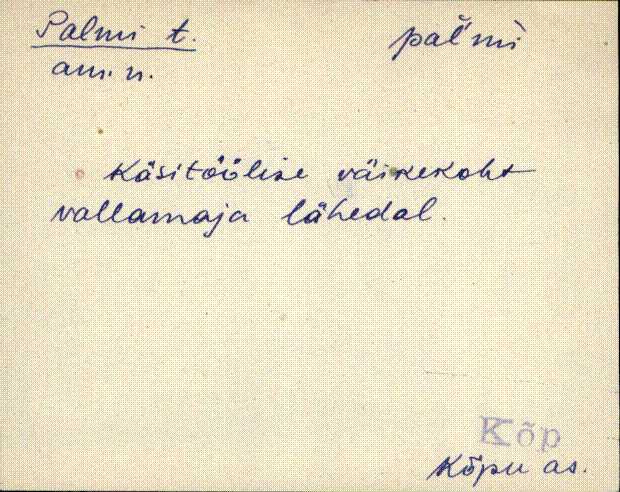 Palmi t. pal̆'mì
am. n.
Käsitöölise väikekoht
vallamaja lähedal.
Kõp
Kõpu as.